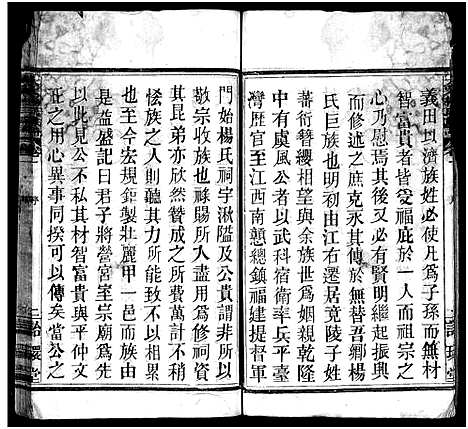 義田以濟族姓必使凡爲子孫而無材
智富貴者皆受福庇於一人而祖宗之
心乃慰焉其後又必有賢明繼起振興
而修述之庶克永其賛於無替吾鄉楊
氏巨族也明初由江右遷居竟陵子姓
蕃衍簪纓相望與余族世爲姻親乾隆
中有虞風公者以武科宿衛率兵平臺
灣歷官至江西南贛總鎮福建提督軍
門始楊氏祠宇湫隘及公貴謂非所以
敬宗收族也祿賜所入盡用爲修祠資
其昆弟亦欣然贊成之所費萬計不以
恡族之人於今多材智富貴相與誦公
也至今宏規鉅製壯麗甲一邑而族由
是益盛記曰君子將營宮室宗廟爲先
以此見公不私其材智富貴與平仲文
正之用心異事同揆可以傳矣當公之
詒穀堂